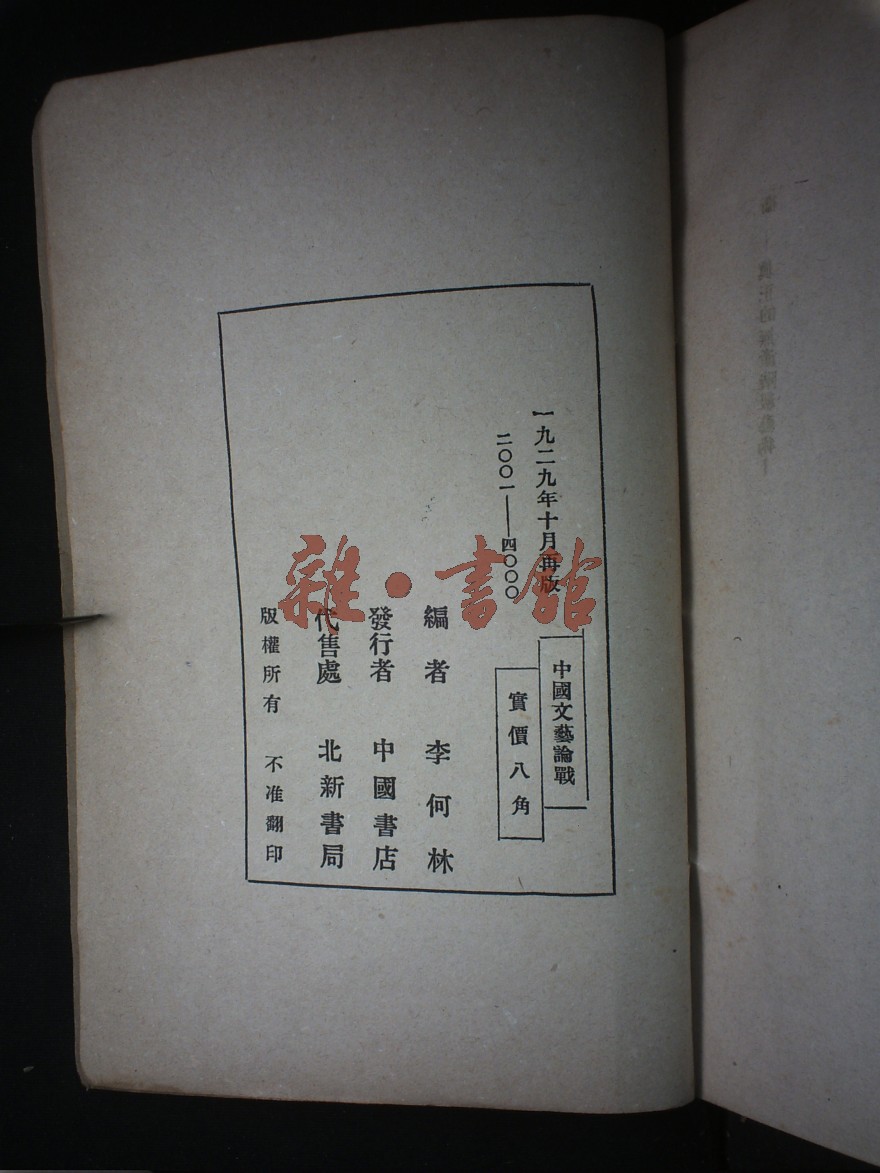 一九二九年十月再版
二〇〇一——四〇〇〇
中國文藝論戰
實價八角
編者 李何林
發行者 中國書店
代售處 北新書局
版權所有 不准翻印
雜·書館